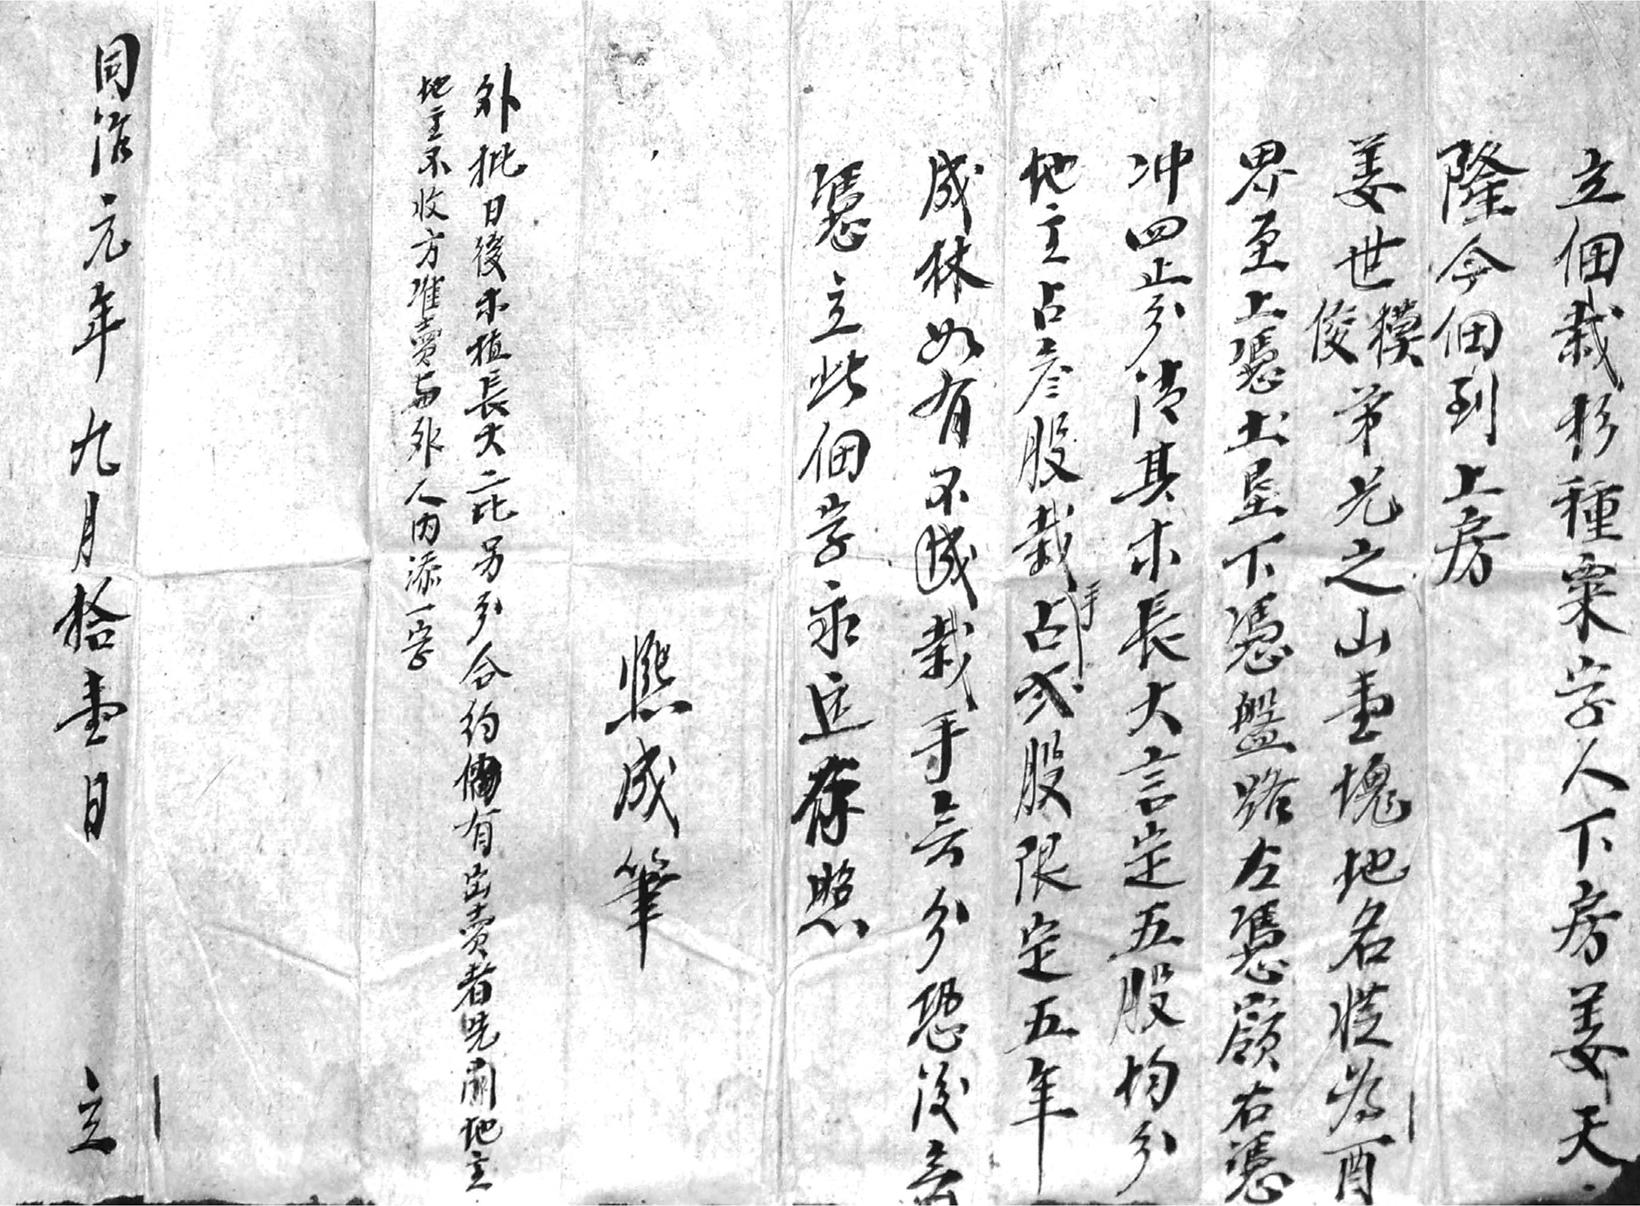 立佃栽杉種粟字人下房姜天
隆今佃到上房
姜世模俊弟兄之山壹塊地名
界至上憑土垦下憑盤路左憑嶺右憑
冲四止分清其木長大言定五股均分
地主占叁股栽手占弍股限定五年
成林如有不成栽手無分恐後無
憑立此佃字永遠存照
熙成筆
外批日後木植長大二比另分合約倘有出賣者先問地主
地主不收方准賣與外人內添一字
同治元年九月拾壹日 立